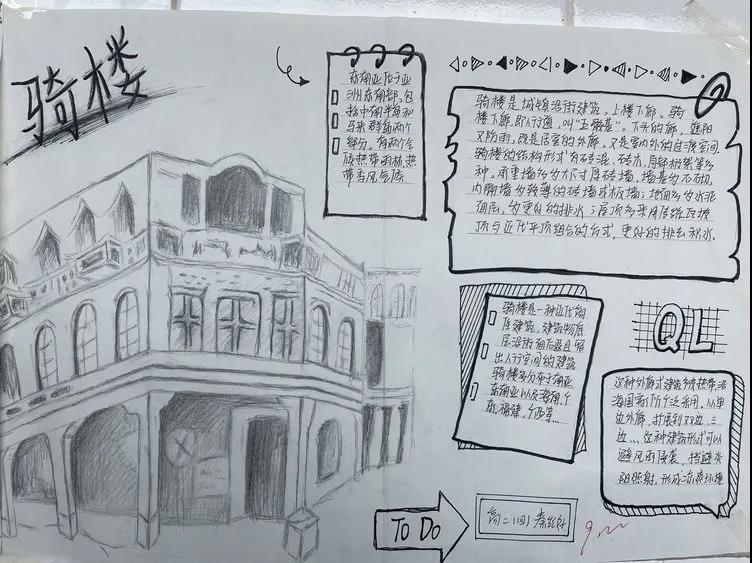 骑楼
东南亚位于亚
洲东南部,包
括中南半岛和
马来群岛两个
部分。有两个气
候热带雨林,热
带季风气候.
骑楼是城镇沿街建筑,上楼下廊。骑
楼下廊,即人行道,叫"五脚基"。下头的廊,遮阳
又防雨,既是居室的外廊,又是室内外的过渡空间.
骑楼的结构形式为砖混、砖木、
种。承重墙多为
内隔墙多为较薄的砖墙或板墙;地面多为水泥
面层,为更好的排水;屋顶多采用
顶与近代平顶组合的方式,更好的排去积水.
骑楼是一种近代的
建筑,建筑物底
层沿街面后退且留
出人行空间的建筑
骑楼多分布于南亚
东南亚以及海南,广
东,福建,广西等...
QL
这种外廊式建筑多被热带沿
海国家所广泛采用.从单
边外廊,扩展到双边、三
边...这种建筑形式可以
避风雨侵袭,挡避炎
阳照射,形成凉爽环境
TO DO
高二